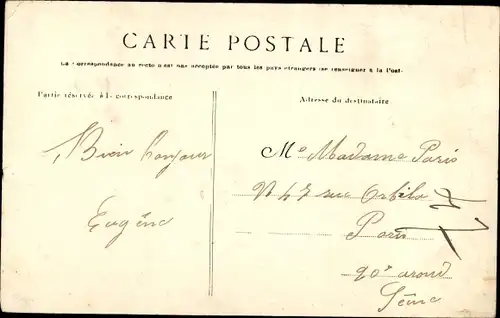 CARTE POSTALE
La Correspondance au recto n'est pas acceptée par tous les pays étrangers (se renseigner à la Post-
Partie réservée à la correspondance
Adresse du destinataire
Bien bonjour
Eugène
Me Madame Paris
N 47 rue Orfila
Paris
20e arond
Seine